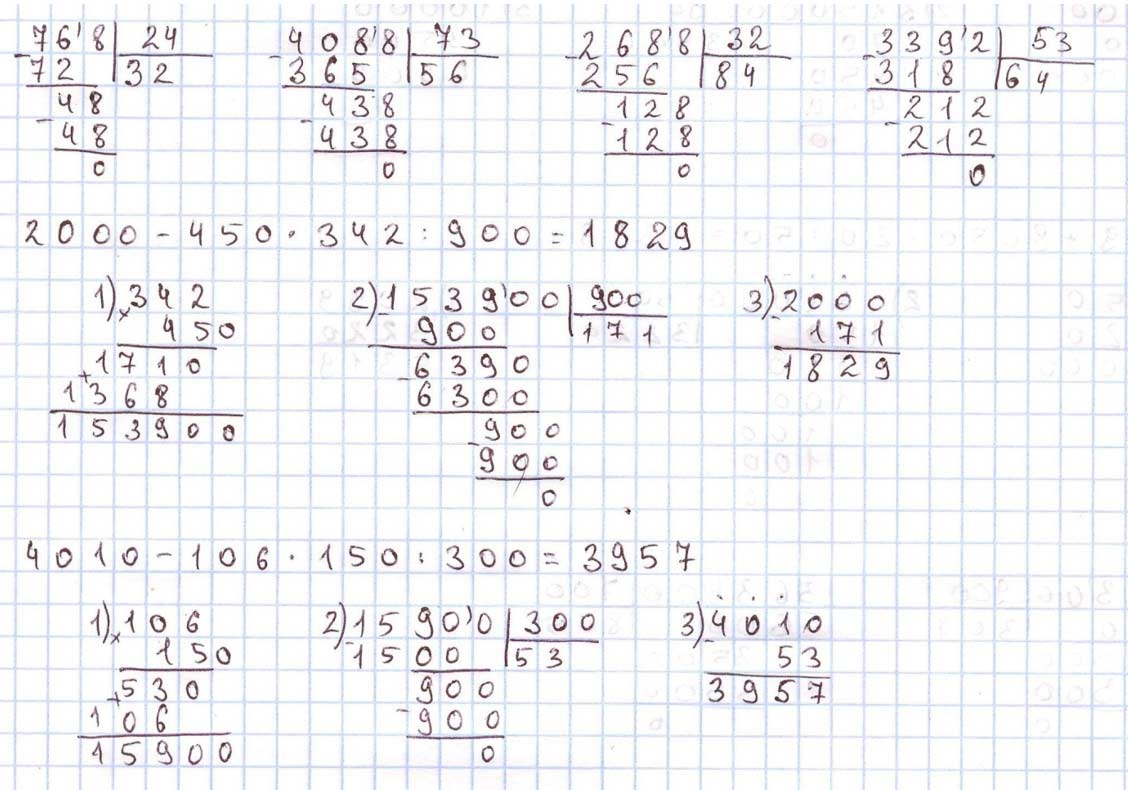 768 | 24    4088 | 73    2688 | 32    3392 | 53
- 72 | 32    - 365 | 56    - 256 | 84    - 318 | 64
48    438    128    212
- 48    - 438    - 128    - 212
0    0    0    0
2000 - 450 · 342 : 900 = 1829
1) × 342    2) - 153900 | 900    3) - 2000
450    900 | 171    171
+ 1710    6390    1829
1368    - 6300
153900    900
- 900
0
4010 - 106 · 150 : 300 = 3957
1) × 106    2) - 15900 | 300    3) - 4010
150    1500 | 53    53
+ 530    900    3957
106    - 900
15900    0